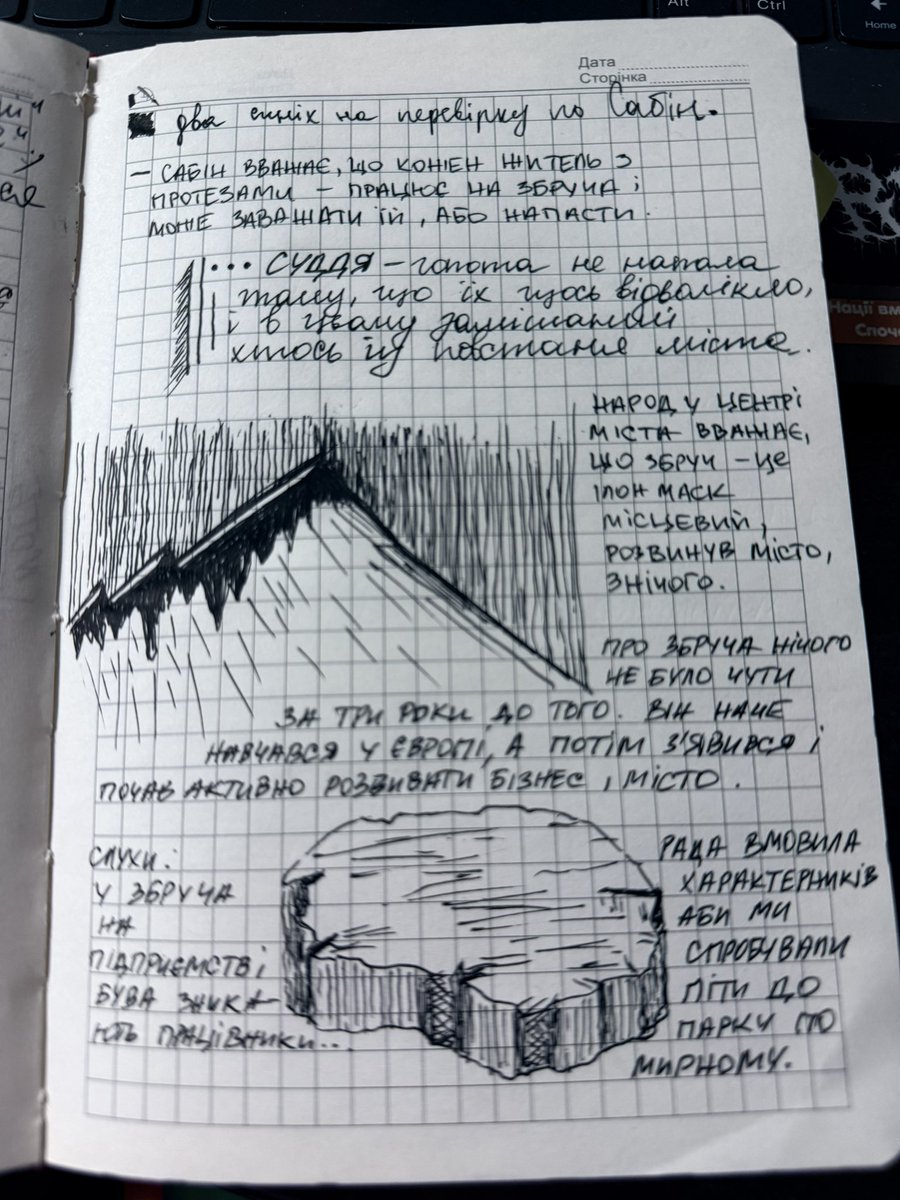 Alt
Ctrl
Home
Дата
Сторінка
два енніх на перевірку по Сабін.
– САБІН ВВАЖАЄ, ЩО КОЖЕН ЖИТЕЛЬ З
ПРОТЕЗАМИ – ПРАЦЮЄ НА ЗБРУЧА І
МОЖЕ ЗАВАЖАТИ ЇЙ, АБО НАПАСТИ.
... СУДДЯ – гопота не напала
тому, що їх щось відволікло,
і в цьому замішаний
хтось із повстання міста.
НАРОД У ЦЕНТРІ
МІСТА ВВАЖАЄ,
ЩО ЗБРУЧ – ЦЕ
ІЛОН МАСК
МІСЦЕВИЙ,
РОЗВИНУВ МІСТО,
ЗНІЧОГО.
ПРО ЗБРУЧА НІЧОГО
НЕ БУЛО ЧУТИ
ЗА ТРИ РОКИ ДО ТОГО. ВІН НАЧЕ
НАВЧАВСЯ У ЄВРОПІ, А ПОТІМ З'ЯВИВСЯ І
ПОЧАВ АКТИВНО РОЗВИВАТИ БІЗНЕС, МІСТО.
СЛУХИ:
У ЗБРУЧА
НА
ПІДПРИЄМСТВІ
БУВА ЗНИКА-
ЮТЬ ПРАЦІВНИКИ...
РАДА ВМОВИЛА
ХАРАКТЕРНИКІВ
АБИ МИ
СПРОБУВАЛИ
ПІТИ ДО
ПАРКУ ПО
МИРНОМУ.
Нації вм
Споч